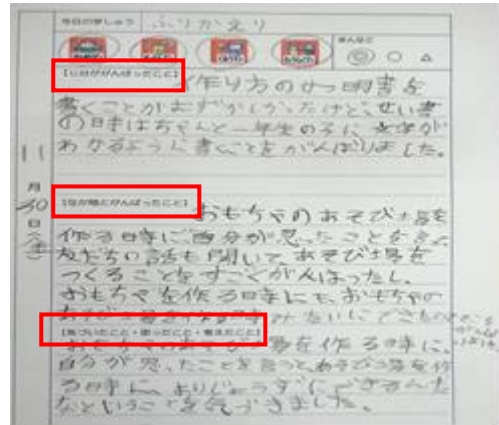 今日のめあて ふりかえり
まんぞく ◎ ○ △
11月30日(金)
【じぶんががんばったこと】
作り方のせつ明書を
書くことがむずかしかったけど、せい書
の日寺はちゃんと一年生の子に文字が
わかるように書くことをがんばりました。
【なかまとがんばったこと】
おもちゃのあそび場を
作る時に自分が思ったことを言
友だちの話も聞いて、あそび場を
つくることをすごくがんばったし、
おもちゃを作る日寺にも、おもちゃの
みたいにできた
【気づいたこと・思ったこと・考えたこと】
おもちゃのあそび場を作る時に、
自分が思ったことを言うと、あそび場を作
る時に、よりじょうずにできるんだ
なということを気づきました。